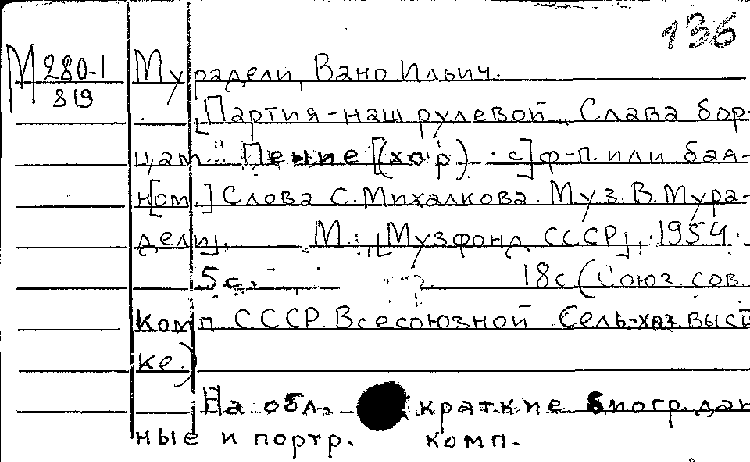 136
М 280-1
819
Мурадели, Вано Ильич.
[Партия-наш рулевой. Слава бор-
цам". Пение (хор) с] ф-п. или бая-
н[ом.] Слова С. Михалкова. Муз. В. Мура-
дели]. М.: [Музфонд СССР], 1954.
5 с. 18с (Союз сов.
комп СССР. Всесоюзной Сель-хоз. выст
ке.)
На обл. краткие биогр. дан
ные и портр. комп.